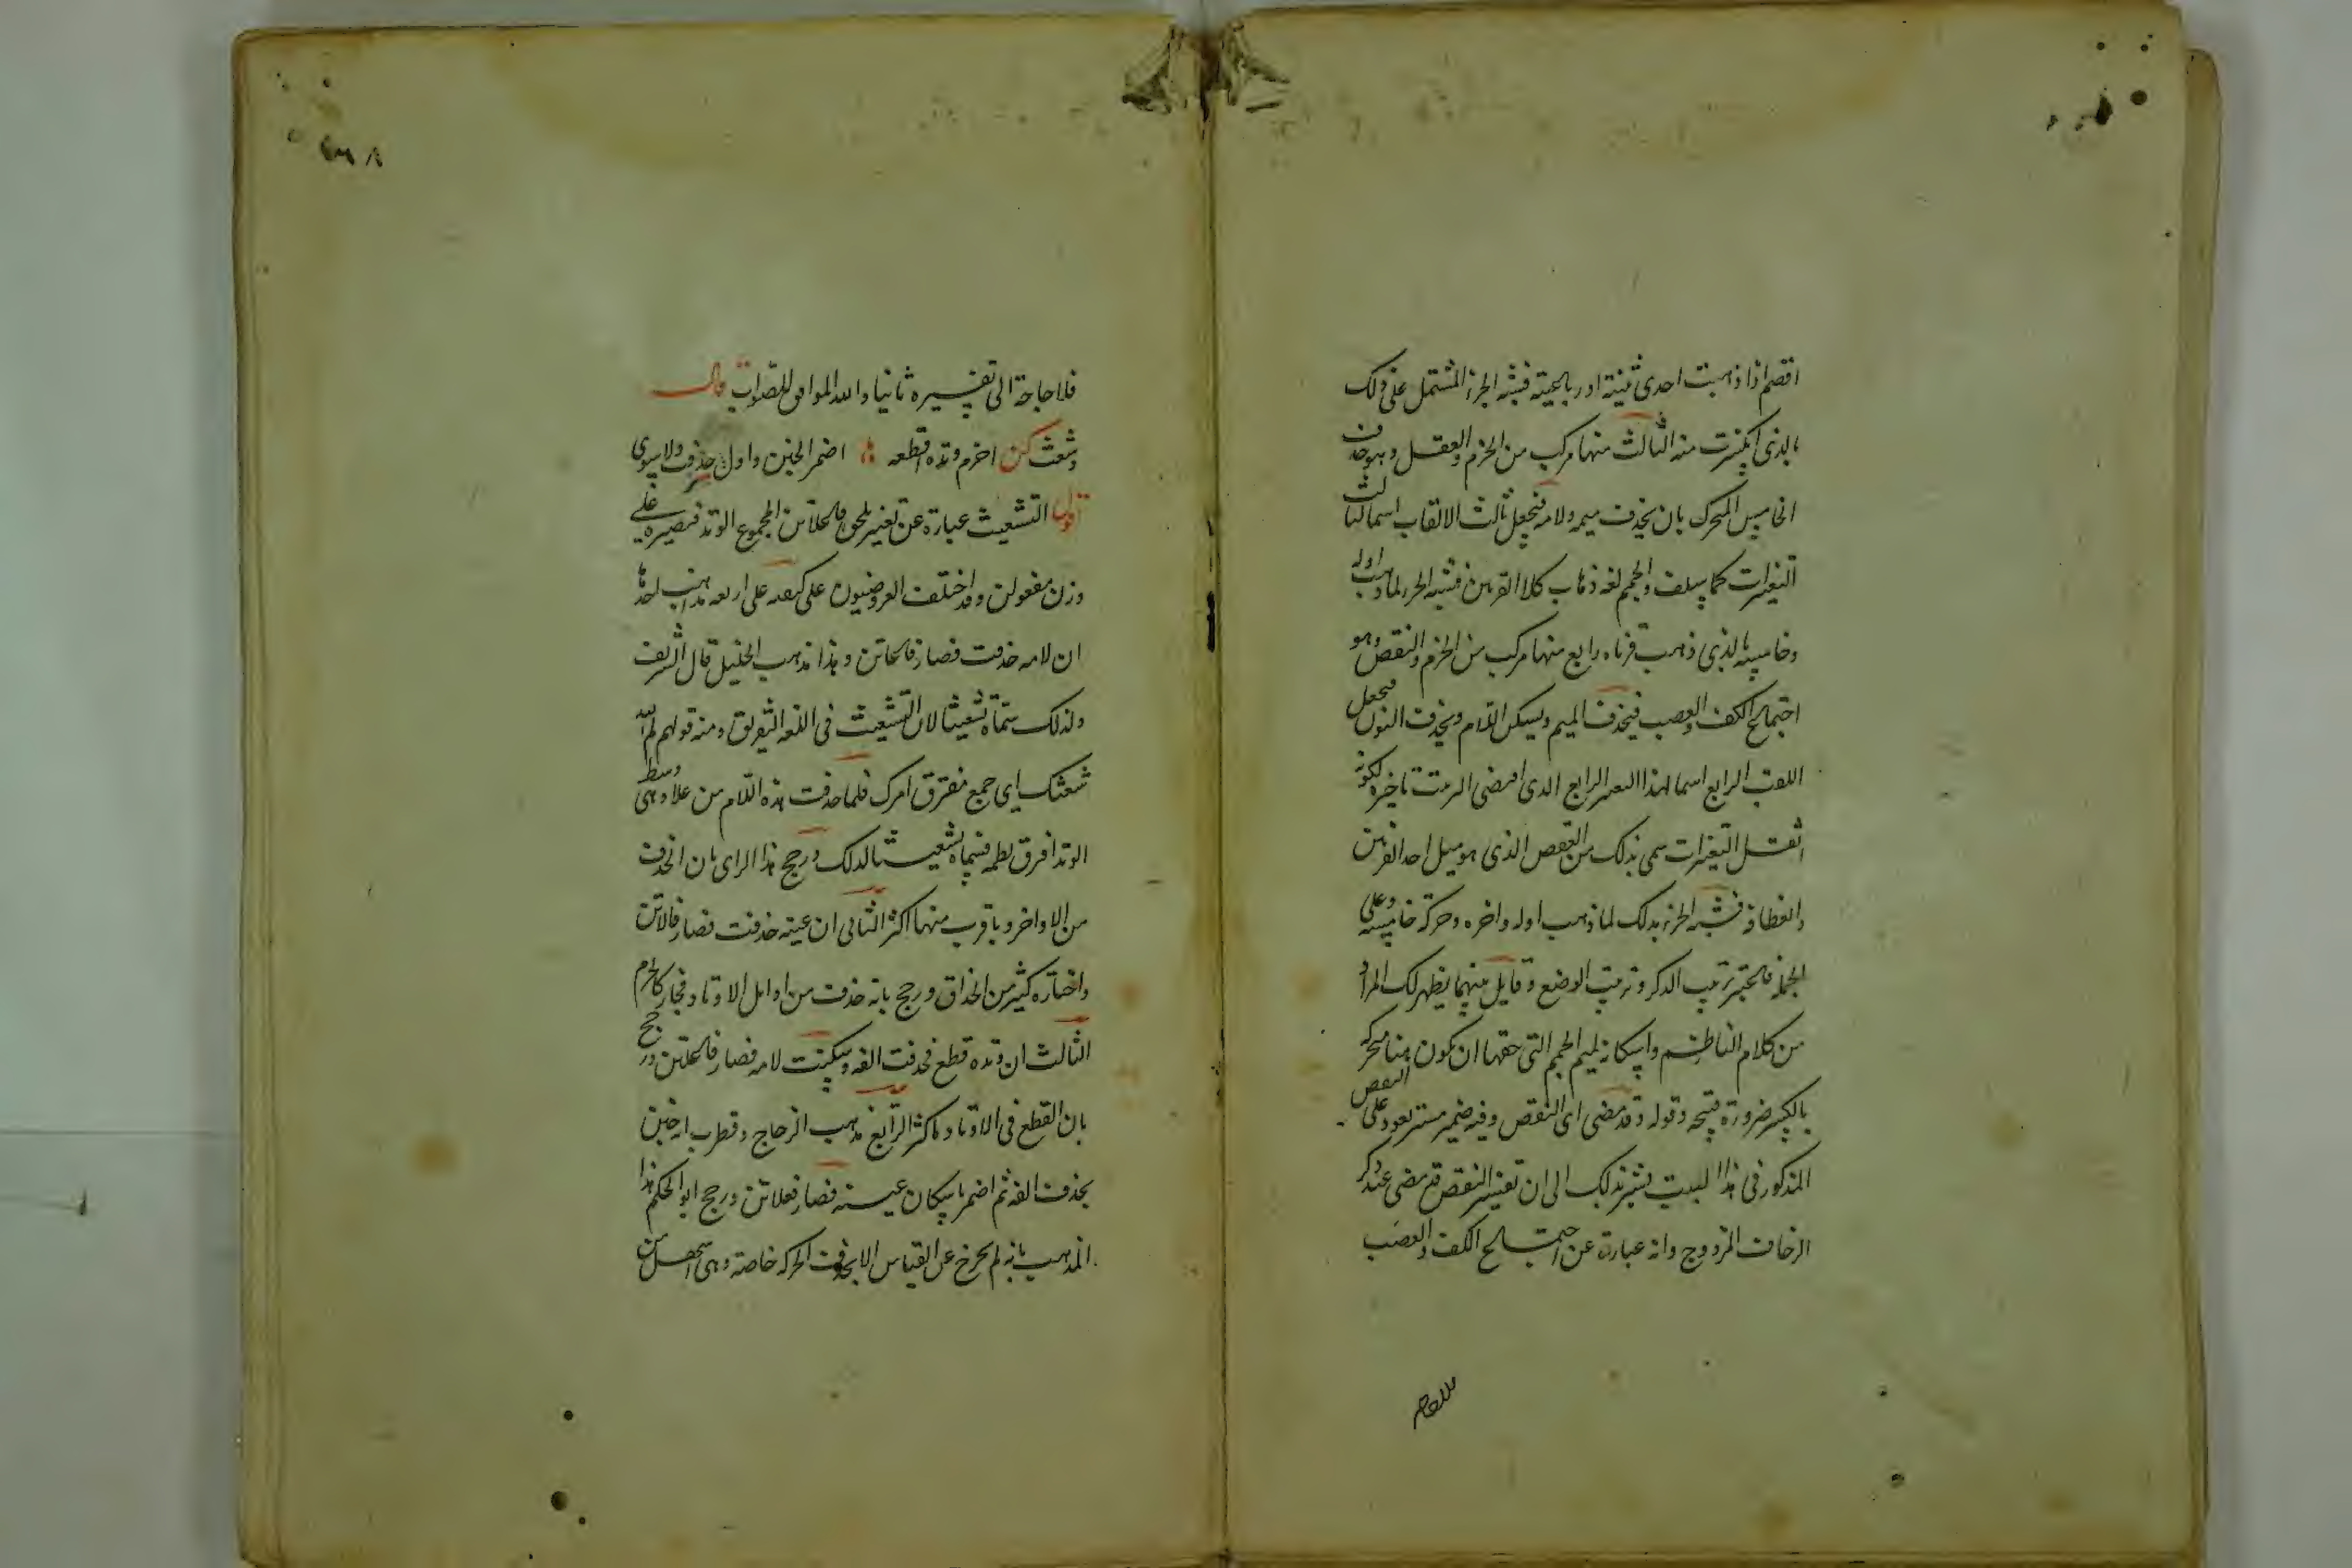 اقصم اذا ذهبت احدى ثنيته او رباعيته فشبه الجزء المشتمل على ذلك
بالذى انكسرت منه الثالث منها مركب من الخزم والعقل وهو حذف
الخامس المتحرك بان يحذف ميمه ولامه فتجعل ثالث الالقاب اسما لثالث
التغيرات كما سلف والجمم لغة ذهاب كلا القرنين فشبه الجزء لما ذهب اوله
وخامسه بالذى ذهب قرناه رابع منها مركب من الخزم والنقص وهو
اجتماع الكف والعصب فيحذف الميم ويسكن اللام ويحذف النون فتجعل
اللقب الرابع اسما لهذا التغير الرابع الذى اقتضى الترتيب تاخيره لكونه
اثقل التغيرات سمى بذلك من العقص الذى هو ميل احد القرنين
وانعطافه فشبه الجزء بذلك لما ذهب اوله واخره وحركة خامسه وعلى
الجملة فاعتبر ترتيب الذكر وترتيب الوضع وقابل بينهما يظهر لك المراد
من كلام الناظم واسكانه لميم الجمم التى حقها ان تكون هنا متحركة
بالكسر ضرورة قبيحة وقوله وقد مضى اى النقص وفيه ضمير مستتر يعود على النقص
المذكور فى هذا البيت يشير بذلك الى ان تفسير النقص قد مضى عند ذكر
الزحاف المزدوج وانه عبارة عن اجتماع الكف والعصب
فلا حاجة الى تفسيره ثانيا والله الموافق للصواب قال
وشعث كن اخرم وتده اقطعه اضمر الخبن واول حذف ولا سوى
اقول التشعيث عبارة عن تغير يلحق فاعلاتن المجموع الوتد فيصيره على
وزن مفعولن وقد اختلف العروضيون على كيفيته على اربعة مذاهب احدها
ان لامه حذفت فصار فاعاتن وهذا مذهب الخليل قال الشريف
ولذلك سماه تشعيثا لان التشعيث فى اللغة التفريق ومنه قولهم لم الله
شعثك اى جمع مفترق امرك فلما حذفت هذه اللام من علا وهى وسط
الوتد افرق نظمه فسماه تشعيثا لذلك ورجح هذا الراى بان الحذف
من الاواخر وما قرب منها اكثر الثانى ان عينه حذفت فصار فالاتن
واختاره كثير من الحذاق ورجح بانه حذف من اوايل الاوتاد فجاز كالخرم
الثالث ان وتده قطع فحذفت الفه وسكنت لامه فصار فاعلتن ورجح
بان القطع فى الاوتاد اكثر الرابع مذهب الزجاج وقطرب انه خبن
بحذف الفه ثم اضمر باسكان عينه فصار فعلاتن ورجح ابو الحكم هذا
المذهب بانه لم يخرج عن القياس الا بحذف الحركة خاصة وهى اسهل من